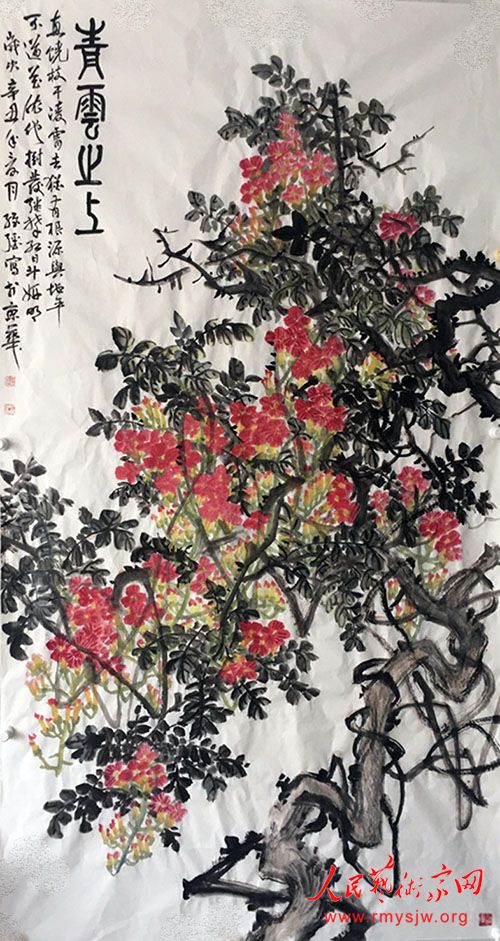 青雲之上
直饒枝干凌霄去猶有根源與地平
不道花依他樹發強攀紅日斗妍明
歲次辛丑年夏月寫於京華
人民藝術家网
www.rmysjw.org